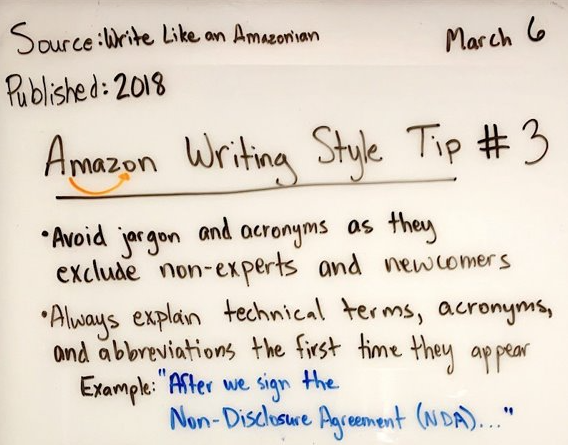 Source: Write Like an Amazonian
March 6
Published: 2018
Amazon Writing Style Tip # 3
•Avoid jargon and acronyms as they
exclude non-experts and newcomers
•Always explain technical terms, acronyms,
and abbreviations the first time they appear
Example: "After we sign the
Non-Disclosure Agreement (NDA)..."